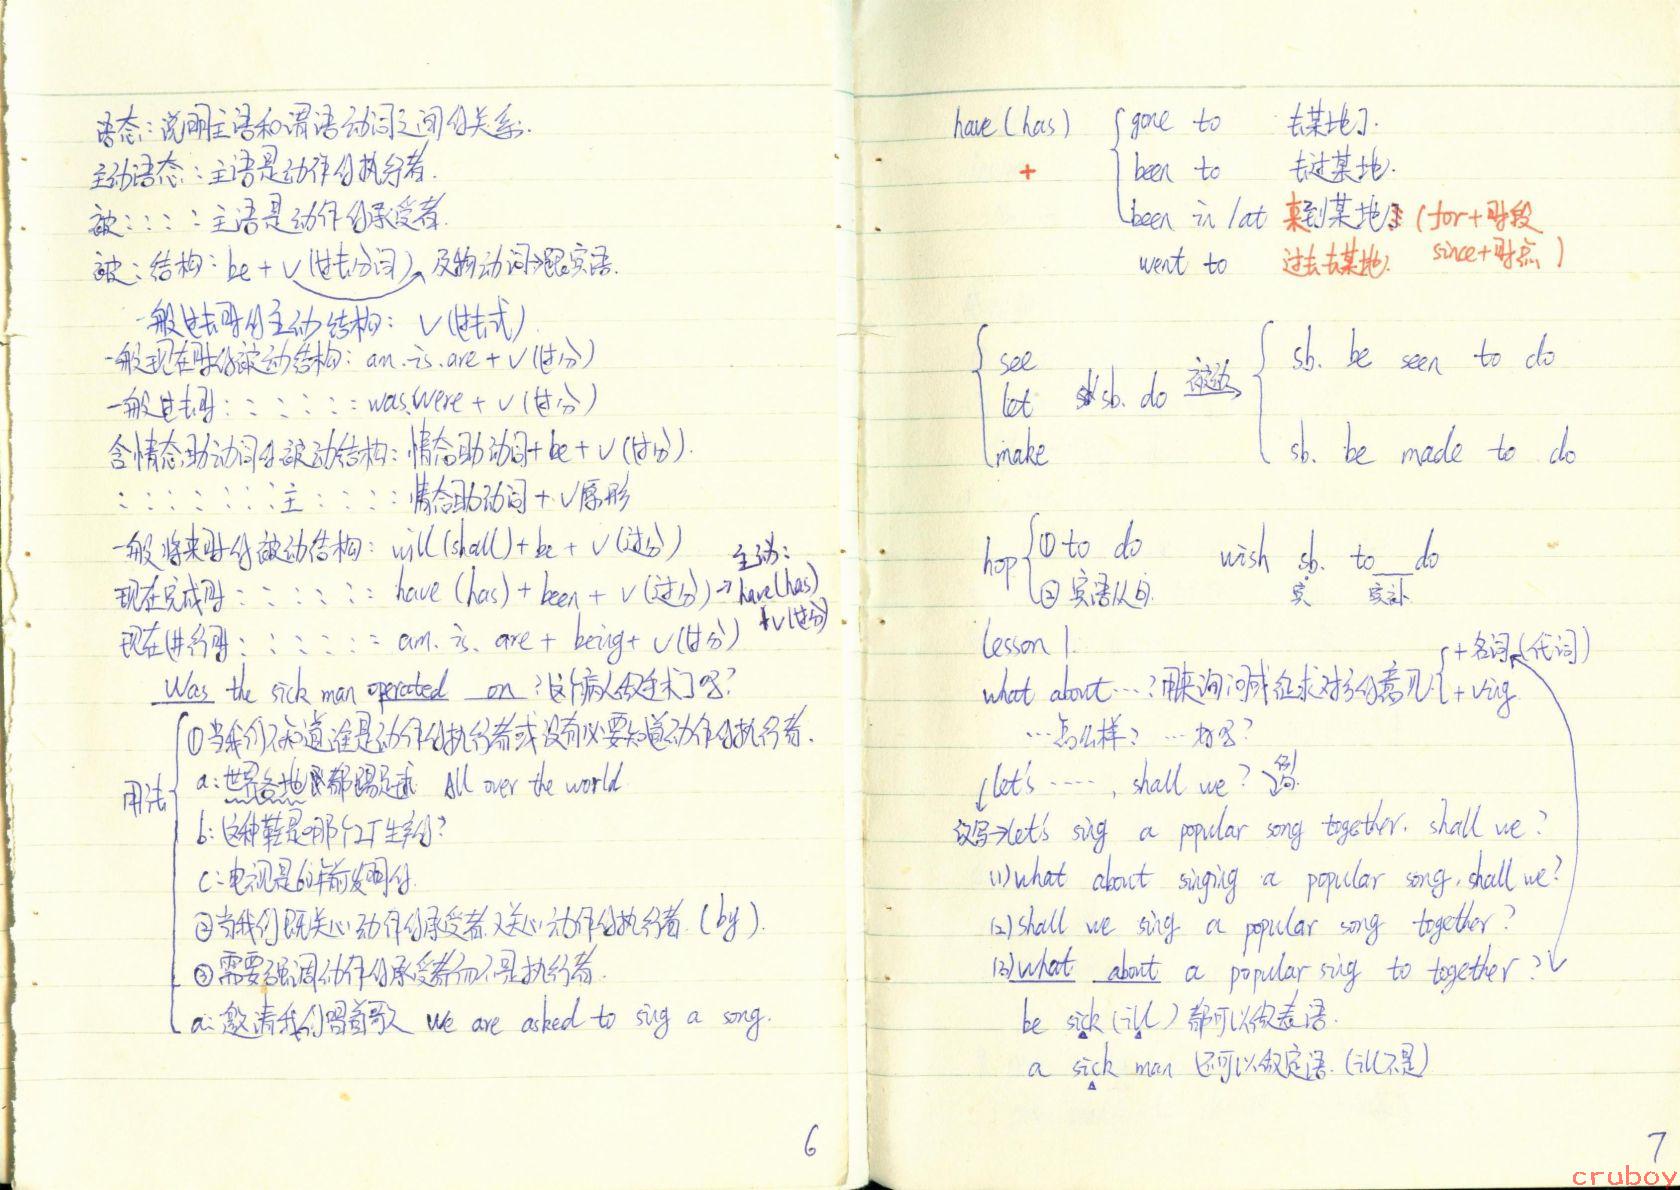 语态：说明主语和谓语动词之间的关系.
主动语态：主语是动作的执行者.
被：：：：主语是动作的承受者.
被：结构：be + V (过去分词) 及物动词→跟宾语.
一般过去时的主动结构： V (过去式)
一般现在时的被动结构：am. is. are + V (过分)
一般过去时：：：：：：was.were + V (过分)
含情态助动词的被动结构：情态助动词+ be + V (过分).
：：：：：：：主：：：：情态助动词 + V原形
一般将来时的被动结构：will (shall) + be + V (过分)
现在完成时：：：：：：have (has) + been + V (过分) → 主动：have (has) + V (过分)
现在进行时：：：：：：am. is. are + being + V (过分)
Was the sick man operated on ? 这个病人做手术了吗?
用法
①当我们不知道谁是动作的执行者或没有必要知道动作的执行者.
a: 世界各地都踢足球 All over the world
b: 这种鞋是哪个工厂生产的?
c: 电视是60年前发明的.
②当我们既关心动作的承受者又关心动作的执行者. (by).
③需要强调动作的承受者而不是执行者.
a: 邀请我们唱首歌 We are asked to sing a song.
6
have (has) gone to 去某地了.
+ been to 去过某地.
been in /at 来到某地了 (for+时段
went to 过去去某地. since+时点)
see
let sb. do 被动→ sb. be seen to do
make sb. be made to do
hop ①to do wish sb. to do
②宾语从句. 宾 宾补
Lesson 1.
what about …? 用来询问或征求对方的意见 +名词 (代词)
+ Ving
…怎么样? …好吗?
let's ……, shall we? 例
改写→let's sing a popular song together. shall we?
(1) what about singing a popular song, shall we?
(2) shall we sing a popular song together?
(3) what about a popular sing to together?
be sick (ill) 都可以做表语.
a sick man 还可以做定语. (ill不是)
7
cruboy